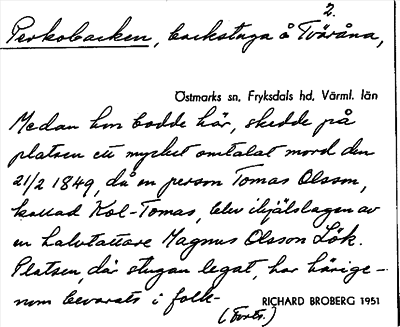 2.
Perkobacken, backstuga å Tväråna,
Östmarks sn, Fryksdals hd, Värml. län
Medan hon bodde här, skedde på
platsen ett mycket omtalat mord den
21/2 1849, då en person Tomas Olsson,
kallad Kol-Tomas, blev ihjälslagen av
en halvtattare Magnus Olsson Lök.
Platsen, där stugan legat, har härige-
nom bevarats i folk-
RICHARD BROBERG 1951
(Forts.)